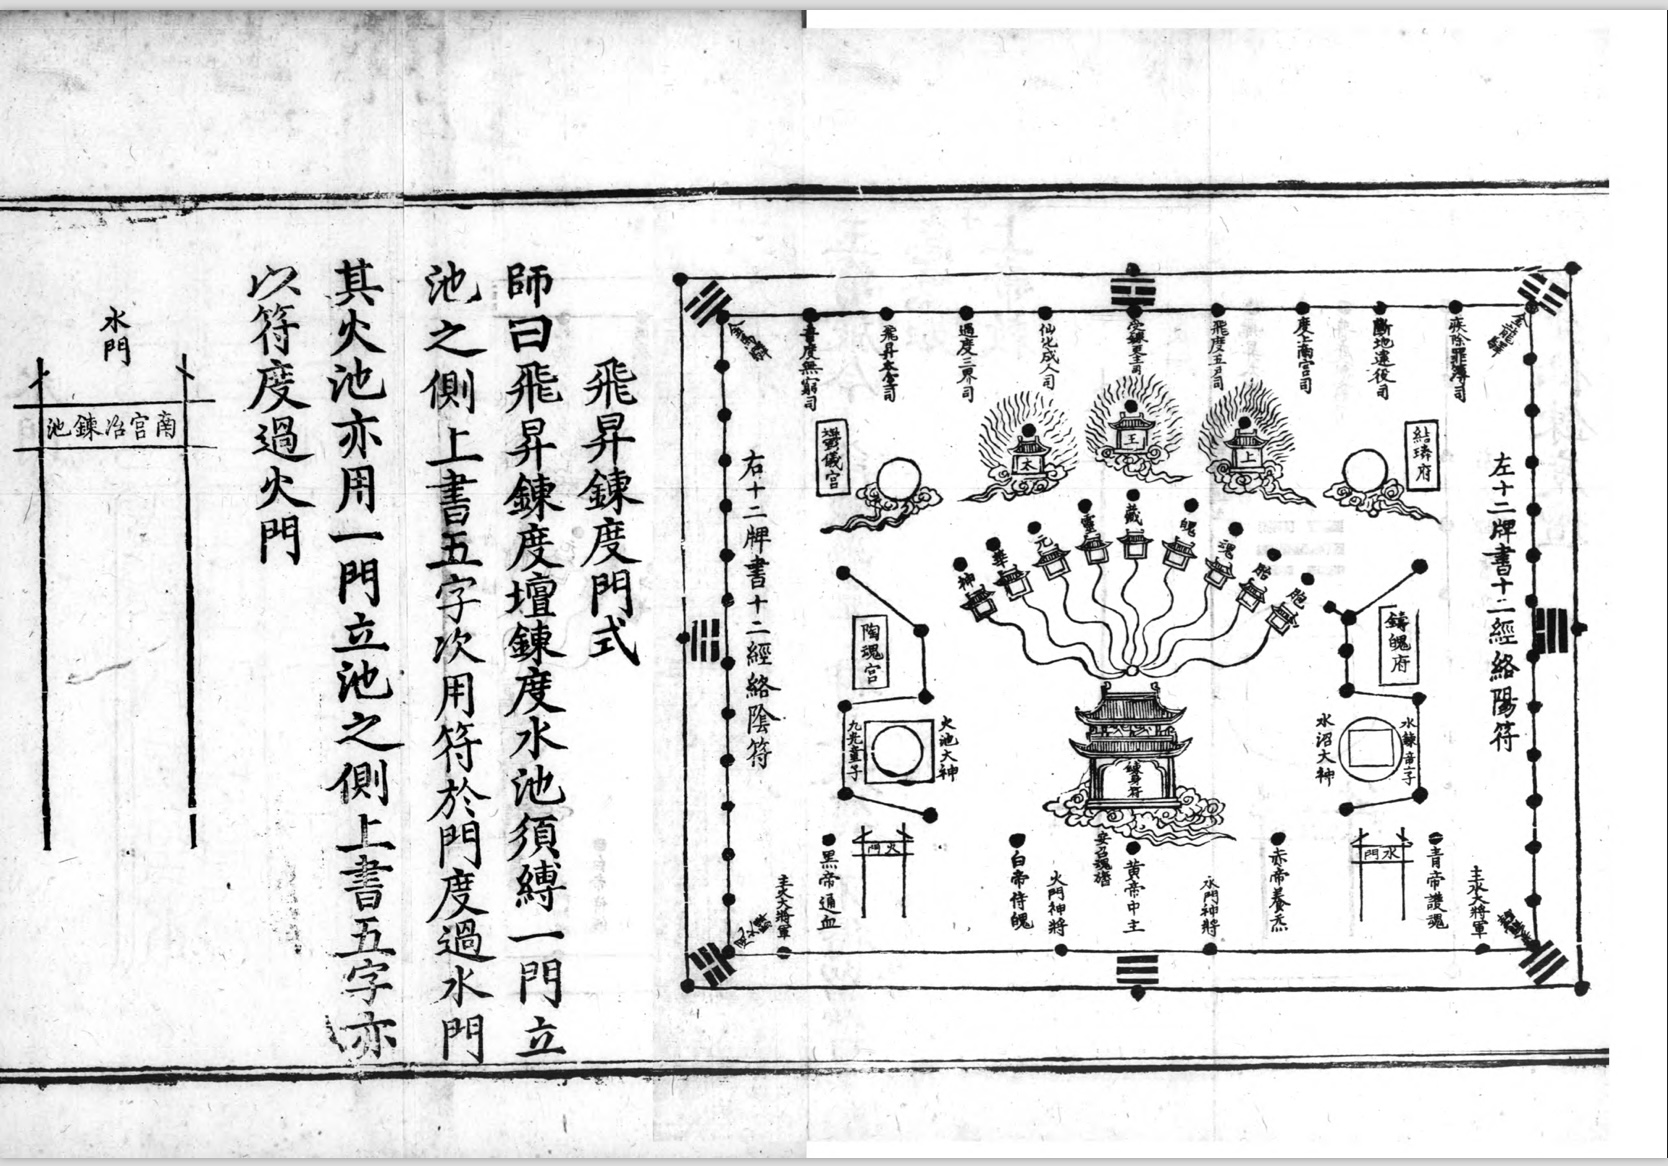 疾除罪簿司
斷地遣役司
度上南宮司
飛度五戶司
受鍊更生司
仙化成人司
過度三界司
飛昇太空司
普度無窮司
金龍驛
金馬驛
結璘府
上
王
太
儀宮
左十二牌書十二經絡陽符
右十二牌書十二經絡陰符
胞
胎
魂
魄
藏
靈
元
華
神
鑄魄府
陶魂宮
水鍊童子
水沼大神
火池大神
九炁童子
符
水門
火門
主水大將軍
青帝護魂
赤帝養炁
水門神將
黃帝中主
安召魂旛
火門神將
白帝侍魄
黑帝通血
主火大將軍
飛昇鍊度門式
師曰飛昇鍊度壇鍊度水池須縛一門立
池之側上書五字次用符於門度過水門
其火池亦用一門立池之側上書五字亦
以符度過火門
水門
南宮冶鍊池